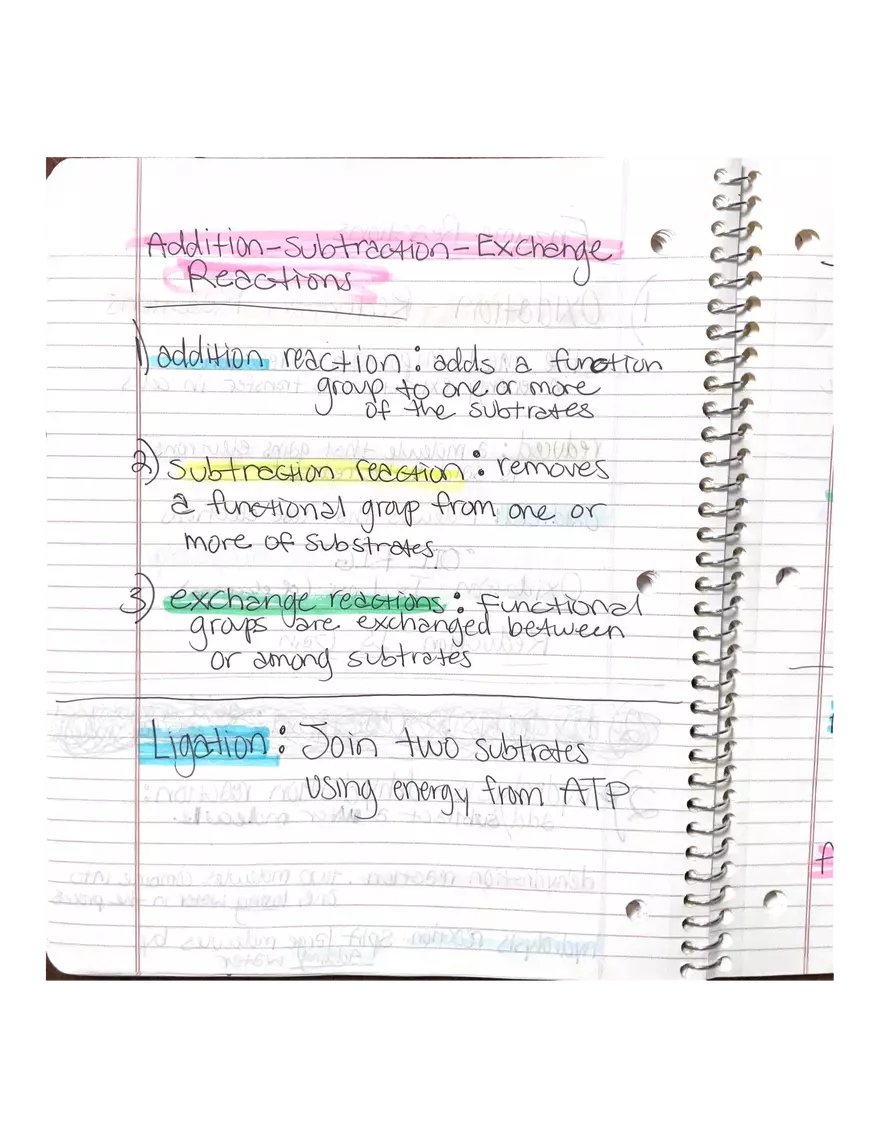 Addition-Subtraction-Exchange
Reactions
1) addition reaction: adds a function
group to one or more
of the subtrates
2) subtraction reaction: removes
a functional group from one or
more of substrates.
3) exchange reactions: functional
groups are exchanged between
or among subtrates
Ligation: Join two subtrates
using energy from ATP